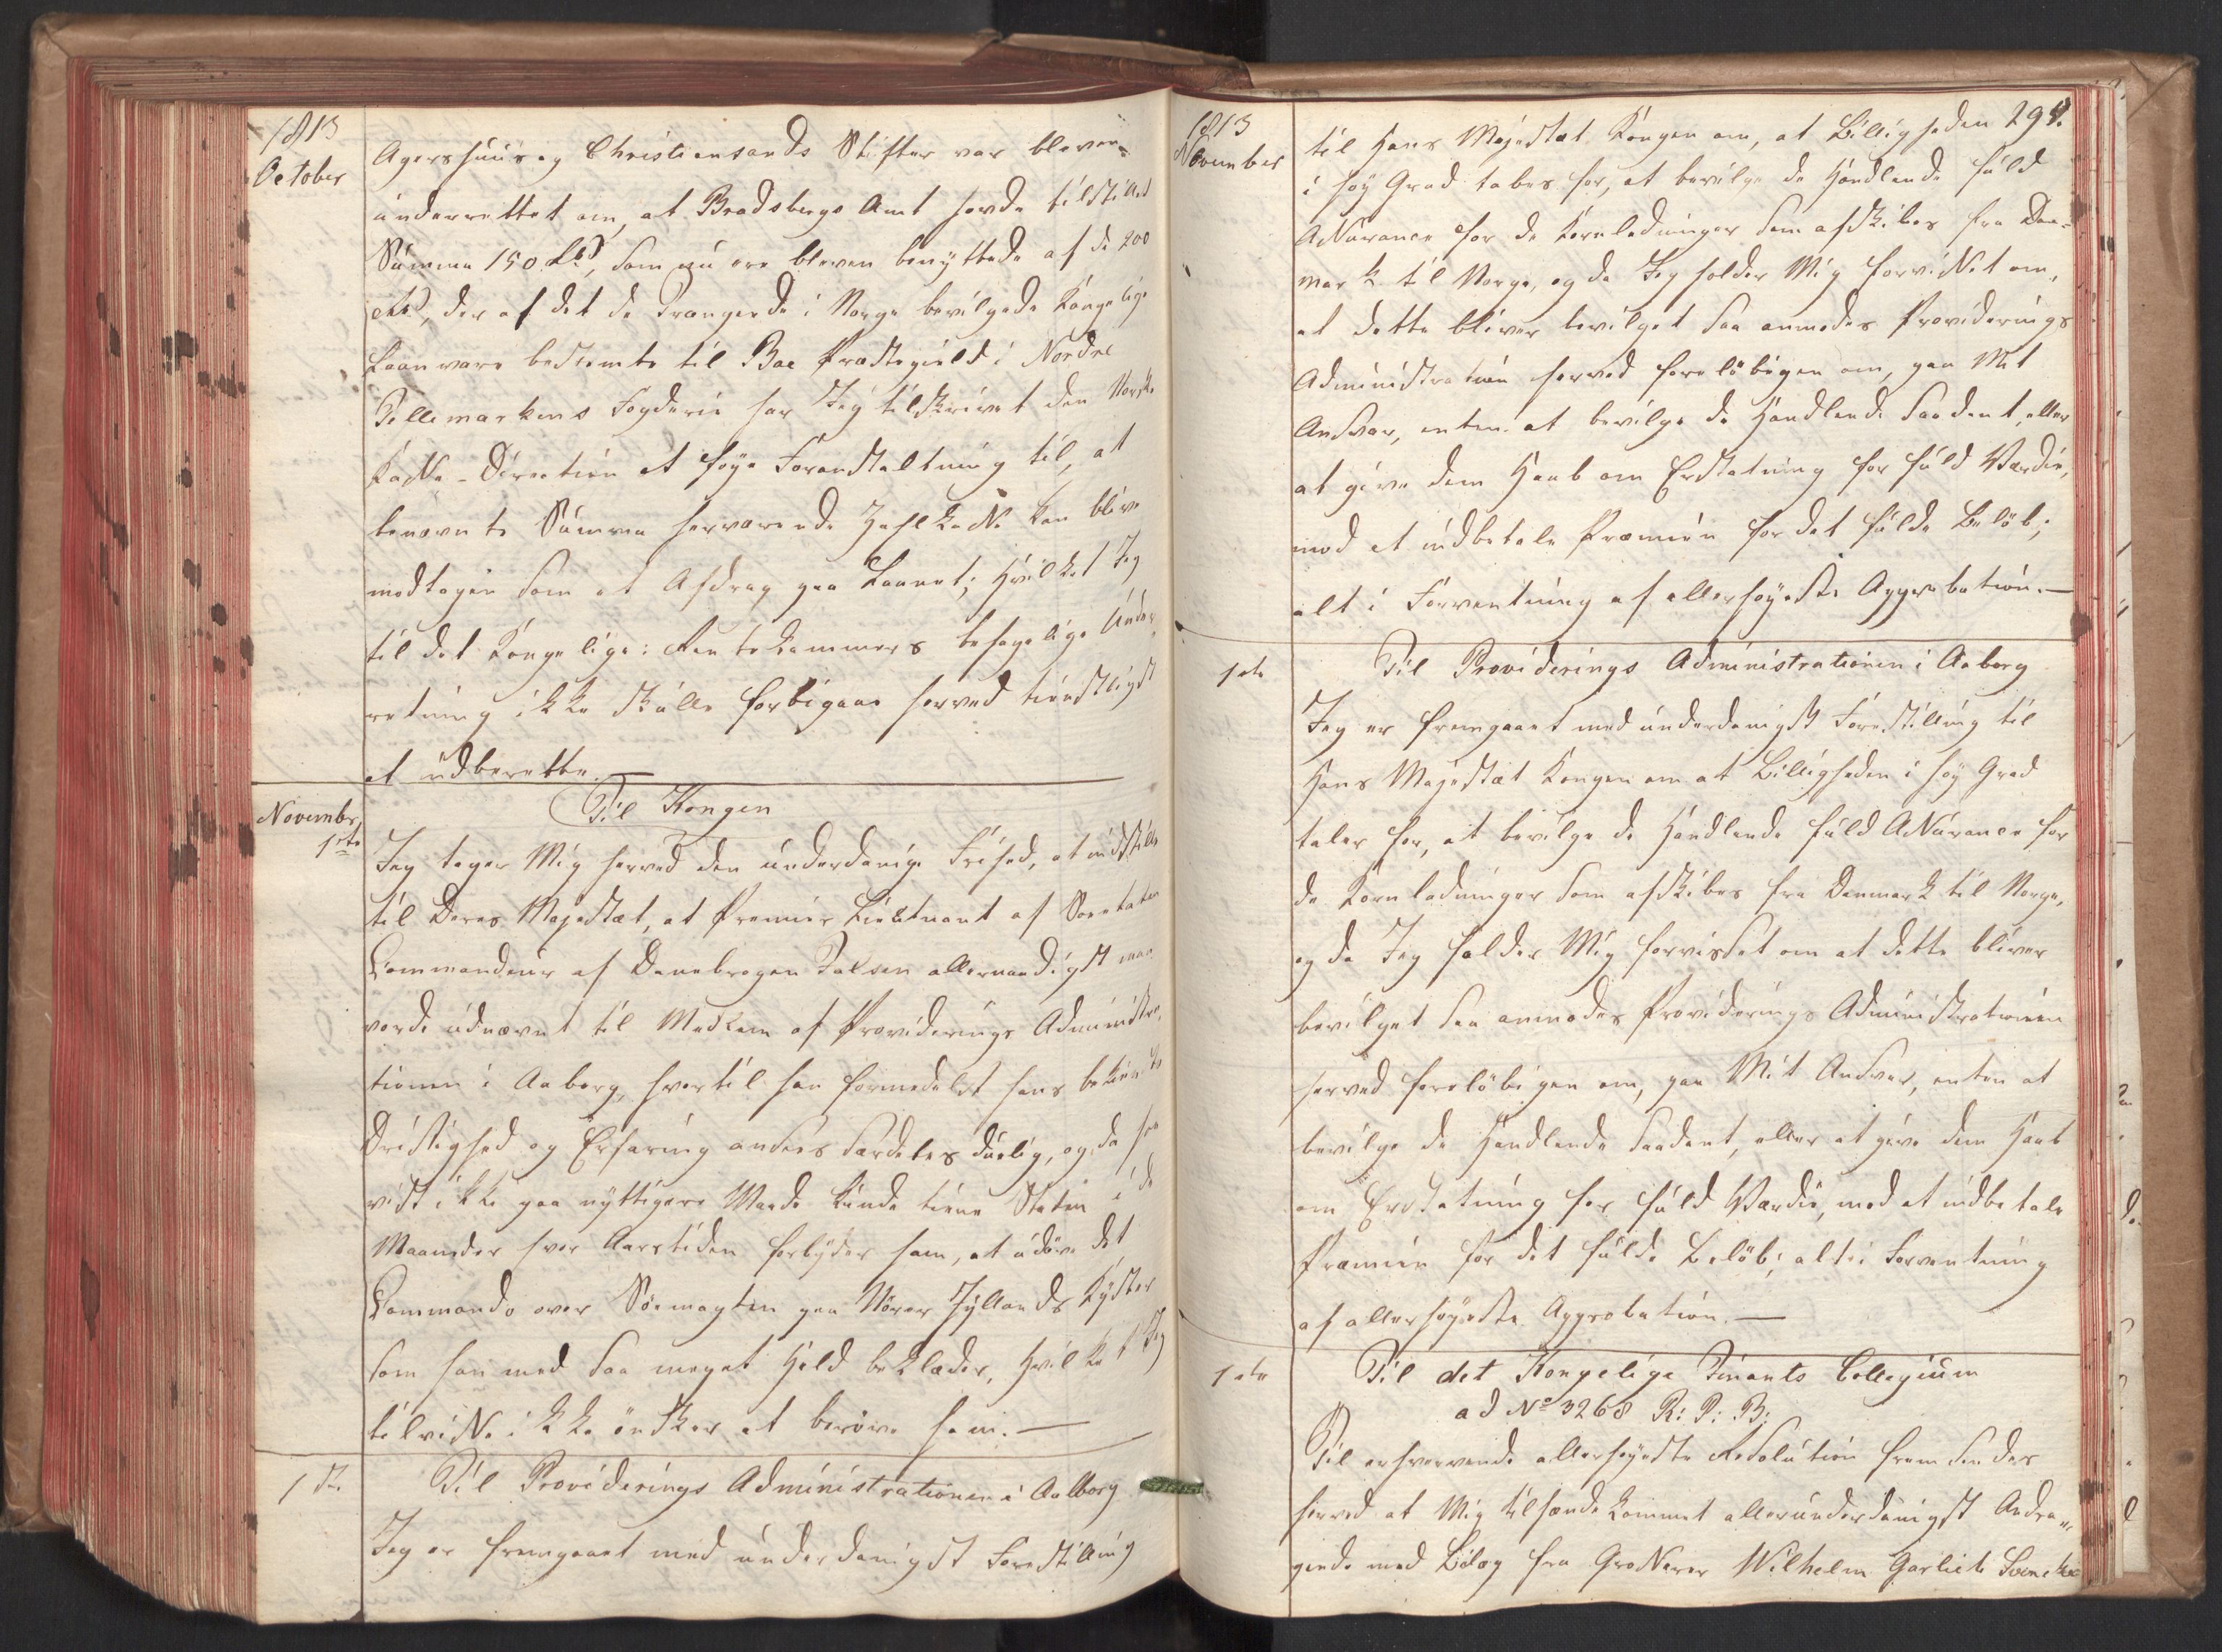 1813
October
Agershuus og Christiansands Stifter var bleven
underrettet om, at Bradsbergs Amt havde tilstillet
Summa 150 Rd, som nu ere bleven benyttede af de 200
Rd, der af det de Trængende i Norge bevilgede Kongelige
Laan vare bestemte til Boe Præstegield i Nordre
Tellemarkens Fogderie har Jeg tilskrivet den Norske
Kasse-Direction at føye Foranstaltning til, at
benævnte Summa herværende Zahlkasse kan blive
modtagen som et Afdrag paa Laanet; hvilket Jeg
til det Kongelige: Rentekammers behagelige Under
retning ikke skulle forbigaae herved tienstligst
at udberette. —
November
1ste
Til Kongen
Jeg tager Mig herved den underdanige Frihed, at indstille
til Deres Majestæt, at Premier Lieutnant af Søeetaten
Commandeur af Danebrogen Falsen allernaadigst maae
vorde udnævnt til Medlem af Providerings Administra-
tionen i Aaborg, hvortil han formedelst hans bekiendte
Dristighed og Erfaring ansees særdeles duelig, og da han
vist ikke paa nyttigere Maade kunde tiene Staten i de
Maaneder hvor Aarstiden forbyder ham, at udøve det
Commando over Søemagten paa Nørre Jyllands Kyster
som han med saa meget Held beklæder, hvilket Jeg
tilvisse ikke ønsker at berøve ham. —
1ste
Til Providerings Administrationen i Aalborg
Jeg er fremgaaet med underdanigst Forestilling
1813
November
294.
til Hans Majestæt Kongen om, at Billigheden
i høy Grad tales for, at bevilge de Handlende fuld
Assurance for de Kornladninger som afskibes fra Dan-
mark til Norge, og da Jeg holder Mig forvisset om,
at dette bliver bevilget saa anmodes Providerings
Administrationen herved foreløbigen om, paa Mit
Ansvar, enten at bevilge de Handlende saadant, eller
at give dem Haab om Erstatning for fuld Værdie,
mod at indbetale Præmien for det fulde Beløb;
alt i Forventning af allerhøyeste Approbation. —
1ste
Til Providerings Administrationen i Aaborg
Jeg er fremgaaet med underdanigst Forestilling til
Hans Majestæt Kongen om at Billigheden i høy Grad
taler for, at bevilge de Handlende fuld Assurance for
de Kornladninger som afskibes fra Danmark til Norge,
og da Jeg holder Mig forvisset om at dette bliver
bevilget saa anmodes Providerings Administrationen
herved foreløbigen om, paa Mit Ansvar, enten at
bevilge de Handlende saadant, eller at give dem Haab
om Erstatning for fuld Værdie, mod at indbetale
Præmien for det fulde Beløb; alt i Forventning
af allerhøyeste Approbation. —
1ste
Til det Kongelige Finants Collegium
ad No 3268 R: P: B:
Til erhvervende allerhøyeste Resolution fremsendes
herved et Mig tilhændekommet allerunderdanigst Andra-
gende med Bilag fra Grosserer Wilhelm Garlieb